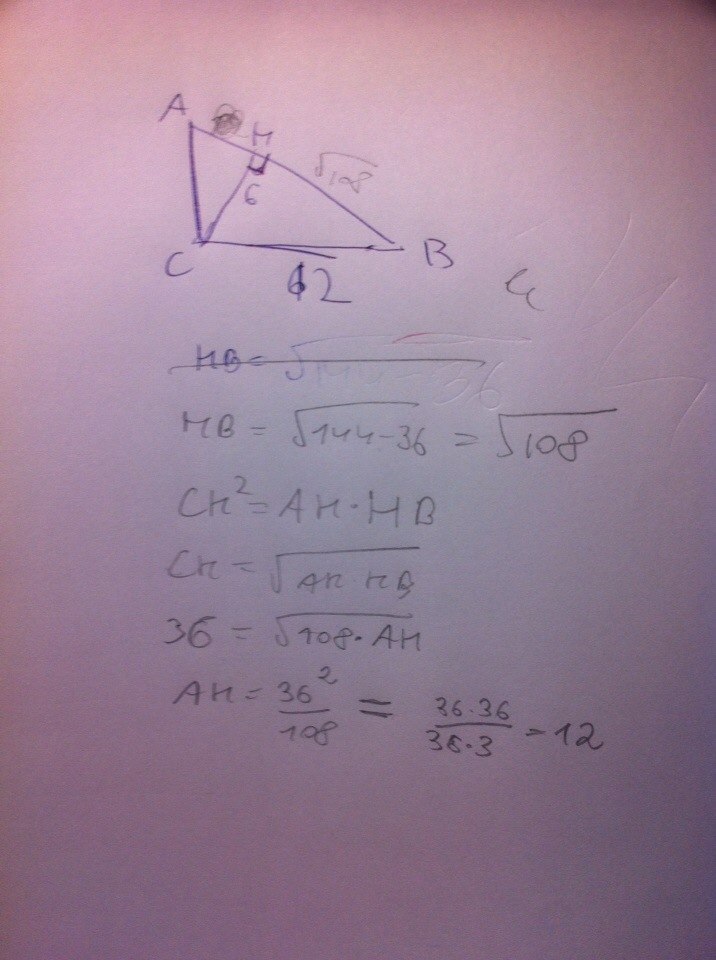 A
H
√108
6
C
B
12
HB = √144-36
HB = √144-36 = √108
CH² = AH·HB
CH = √AH·HB
36 = √108·AH
AH = 36²/108 = 36·36/36·3 = 12